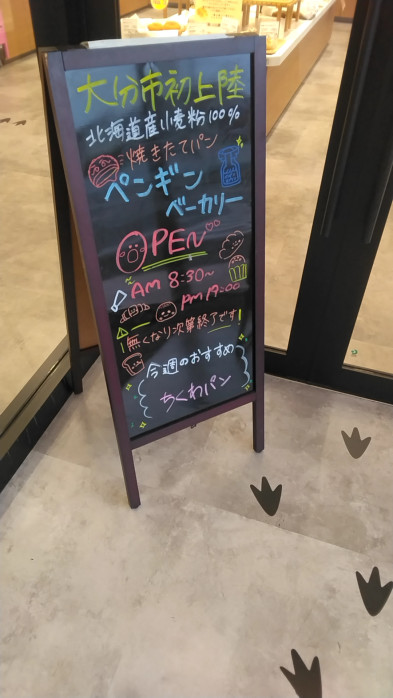 大分市初上陸
北海道産小麦粉100%
焼きたてパン
ペンギン
ベーカリー
OPEN
AM 8:30~
PM 19:00
無くなり次第終了です!
今週のおすすめ
ちくわパン